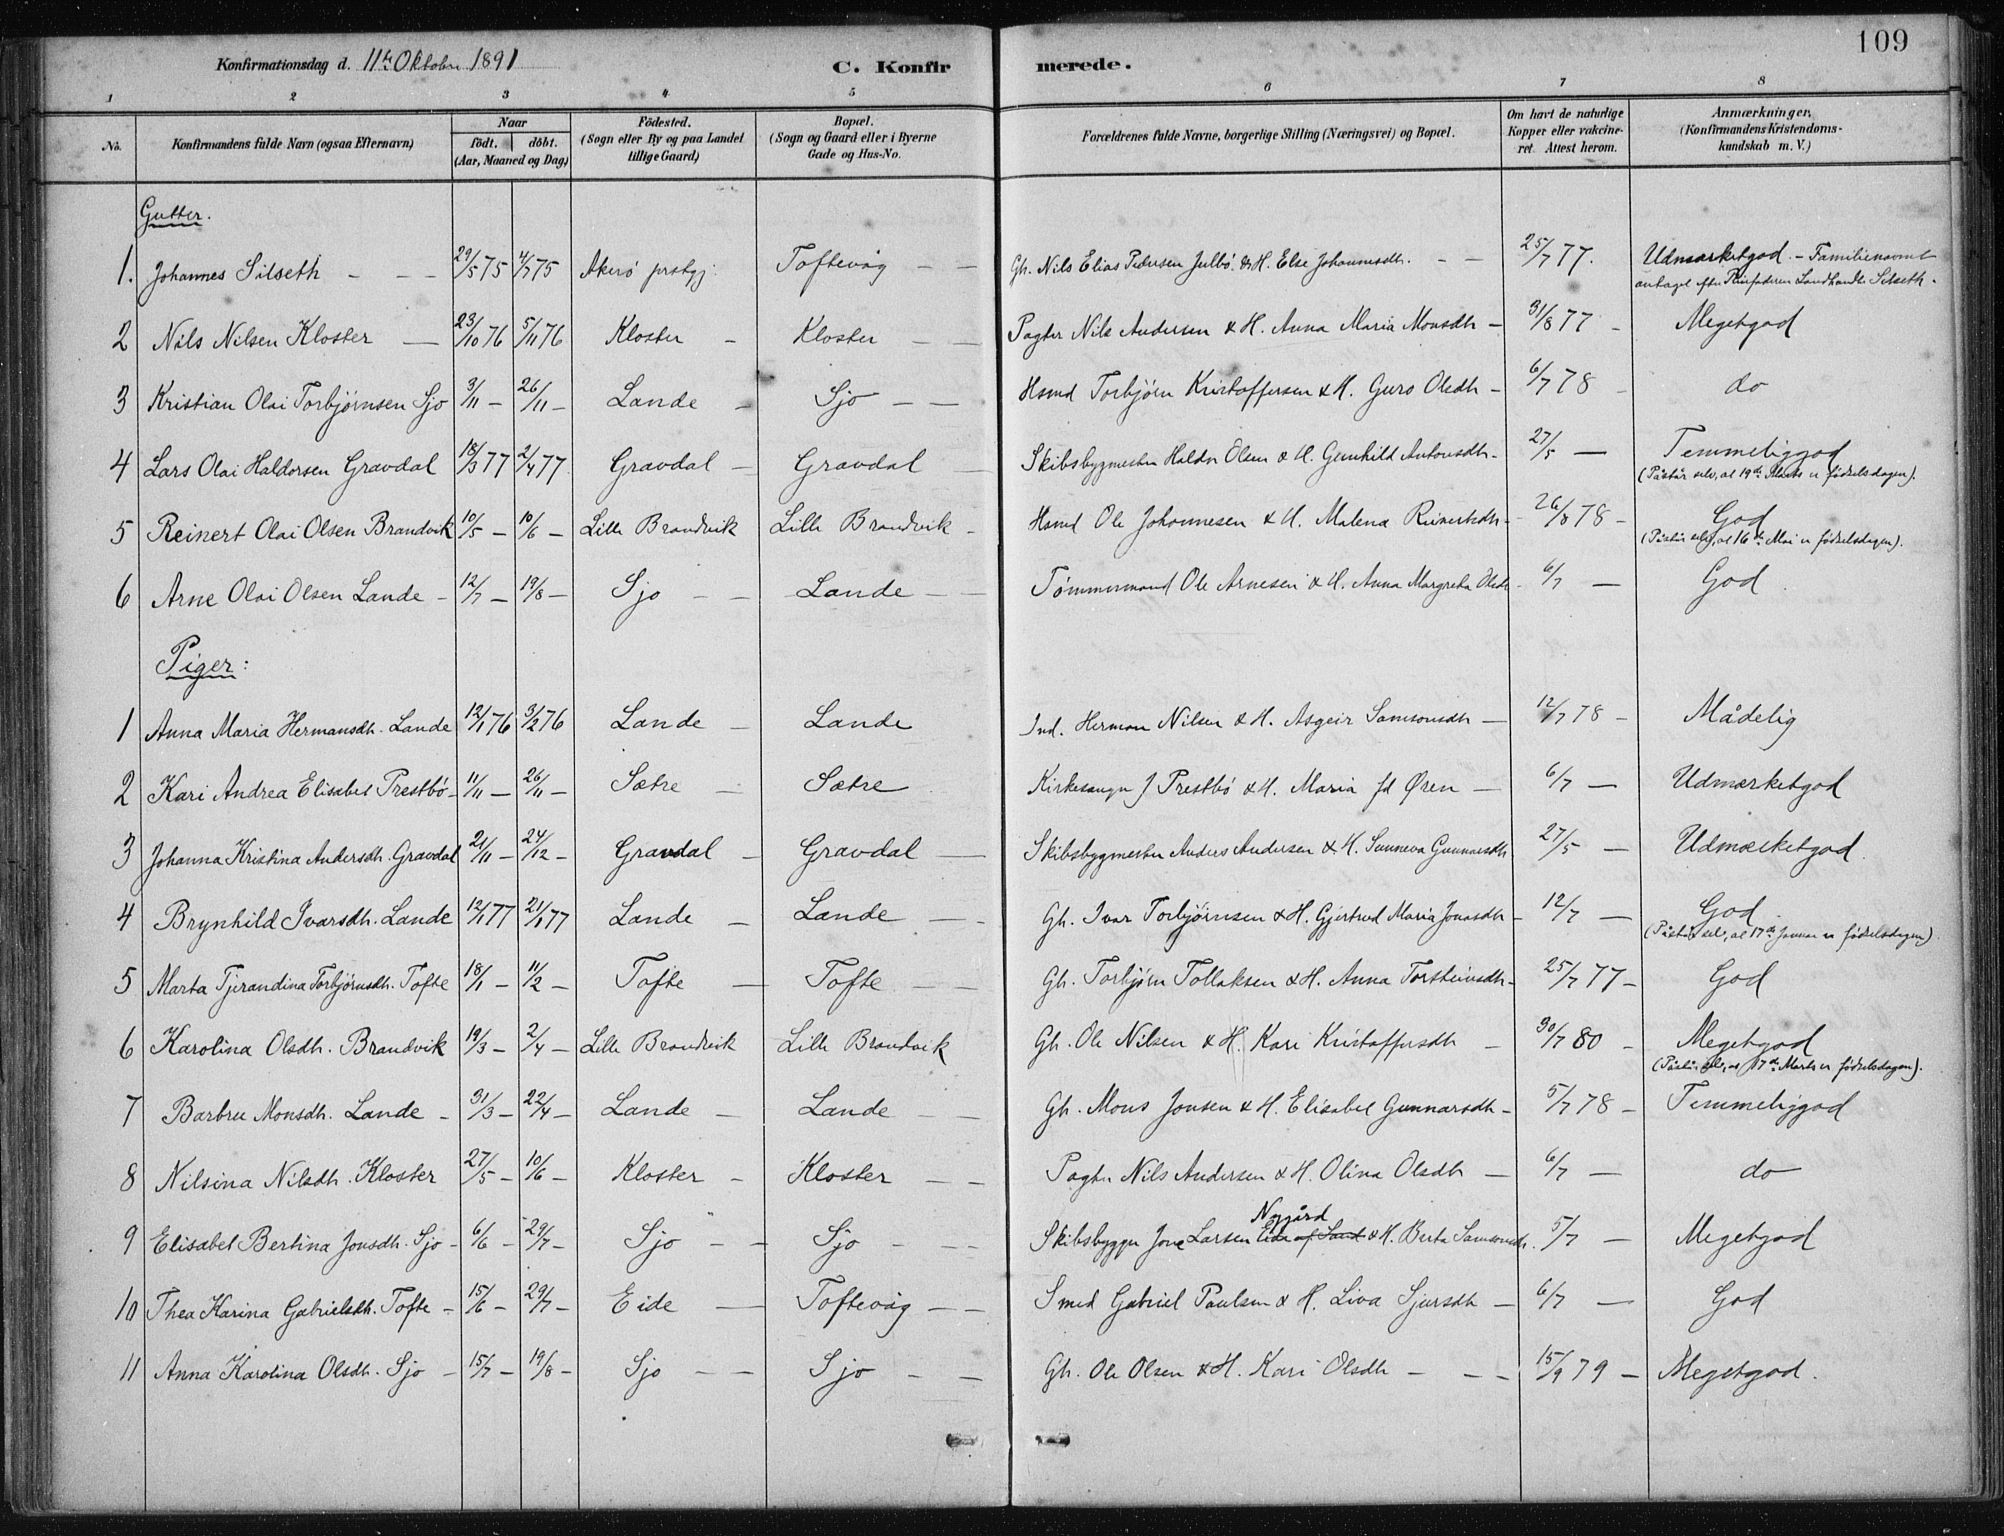 109
Konfirmationsdag d. 11te Oktober 1891 C. Konfirmerede.
1 2 3 4 5 6 7 8
No. Konfirmandens fulde Navn (ogsaa Efternavn) Naar født. døbt. (Aar, Maaned og Dag) Fødested. (Sogn eller By og paa Landet tillige Gaard) Bopæl. (Sogn og Gaard eller i Byerne Gade og Hus-No. Forældrenes fulde Navne, borgerlige Stilling (Næringsvei) og Bopæl. Om havt de naturlige Kopper eller vakcineret. Attest herom. Anmærkninger. (Konfirmandens Kristendomskundskab m. V.)
Gutter.
1. Johannes Silseth - - - 29/5 75 4/7 75 Akerø prstgj. Toftevåg - - Gb. Nils Elias Pedersen Julbø & H. Else Johannesdh. - - 25/7 77. Udmærketgod. - Familienavnet
antaget efter Landhandler Silseth.
2 Nils Nilsen Kloster - 23/10 76 5/11 76 Kloster - Kloster - - Pagter Nils Andersen & H. Anna Maria Monsdh - 31/8 77 - Megetgod
3 Kristian Olai Torbjørnsen Sjo 3/11 - 26/11 - Lande - Sjo - - Hsmd Torbjørn Kristoffersen & H. Guro Olsdh - 6/7 78 - do
4 Lars Olai Haldorsen Gravdal 18/3 77 2/4 77 Gravdal - Gravdal - Skibsbygmester Haldor Olsen & H. Gunhild Antonsdh - 27/5 - Temmeliggod
(Påstår selv, at 19de Marts er fødselsdagen).
5 Reinert Olai Olsen Brandvik 10/5 - 10/6 - Lille Brandvik Lille Brandvik - Hsmd Ole Johannesen & H. Malena Reinertsdh - 26/8 78 - God
(Påstår selv, at 16de Mai er fødselsdagen).
6 Arne Olai Olsen Lande - 12/7 - 19/8 - Sjo - - Lande - - Tømmermand Ole Arnesen & H. Anna Margreta Olsdh - 6/7 - God
Piger:
1 Anna Maria Hermansdh. Lande 12/1 76 3/2 76 Lande - Lande Ind. Herman Nilsen & H. Asgeir Samsonsdh - 12/7 78 - Mådelig
2 Kari Andrea Elisabet Prestbø - 11/11 - 26/11 - Sætre - Sætre Kirkesanger J Prestbø & H. Maria fd Øren - 6/7 - Udmærketgod
3 Johanna Kristina Andersdh. Gravdal 21/11 - 24/12 - Gravdal - Gravdal - Skibsbygmester Anders Andersen & H. Sunneva Gunnarsdh 27/5 - Udmærketgod.
4 Brynhild Ivarsdh. Lande 12/1 77 21/1 77 Lande - Lande - - Gb. Ivar Torbjørnsen & H. Gjertrud Maria Jonasdh - 12/7 - God.
(Påstår selv, at 17de Januar er fødselsdagen).
5 Marta Tjerandina Torbjørnsdh. Tofte 18/1 - 11/2 - Tofte - Tofte - - Gb. Torbjørn Tollaksen & H. Anna Torsteinsdh - 25/7 77 - God
6 Karolina Olsdh. Brandvik 19/3 - 2/4 - Lille Brandvik Lille Brandvik Gb. Ole Nilsen & H. Kari Kristoffersdh - 30/7 80 - Megetgod
(Påstår selv, at 17de Marts er fødselsdagen).
7 Barbru Monsdh. Lande - 31/3 - 22/4 - Lande - Lande - Gb. Mons Jonsen & H. Elisabet Gunnarsdh - 5/7 78 - Temmeliggod
8 Nilsina Nilsdh. Kloster 27/5 - 10/6 - Kloster - Kloster - - Pagter Nils Andersen & H. Olina Olsdh - 6/7 - do
Nygård
9 Elisabet Bertina Jonsdh. Sjo - 6/6 - 29/7 - Sjo - - Sjo - - - Skibsbygger Jone Larsen Eide af Sand & H. Berta Samsonsdh. 5/7 - Megetgod
10 Thea Karina Gabrielsdh. Tofte - 15/6 - 29/7 - Eide - Toftevåg - - Smed Gabriel Paulsen & H. Liva Sjursdh - 6/7 - God
11 Anna Karolina Olsdh. Sjo - 15/7 - 19/8 - Sjo - - Sjo - - Gb. Ole Olsen & H. Kari Olsdh - - - 15/9 79 - Megetgod.